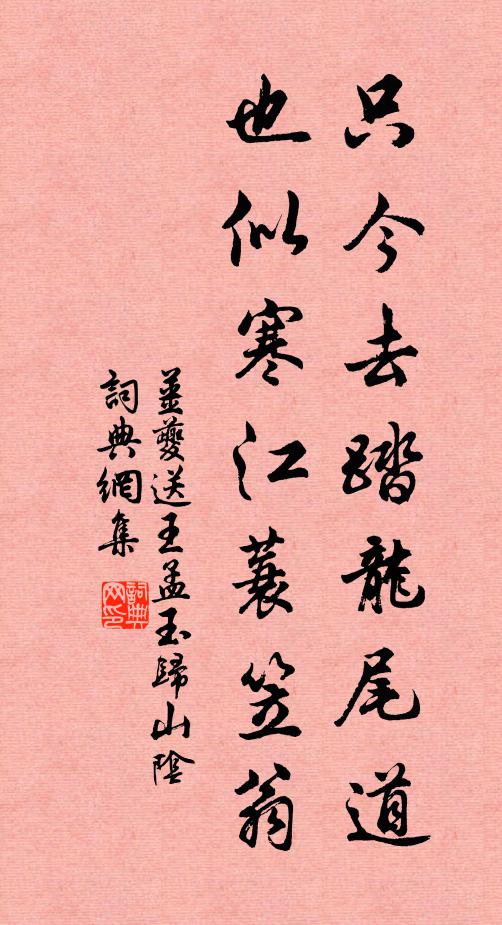 只今去踏龍尾道
也似寒江蓑笠翁
姜夔送王孟玉歸山陰
詞典網集
詞典网印